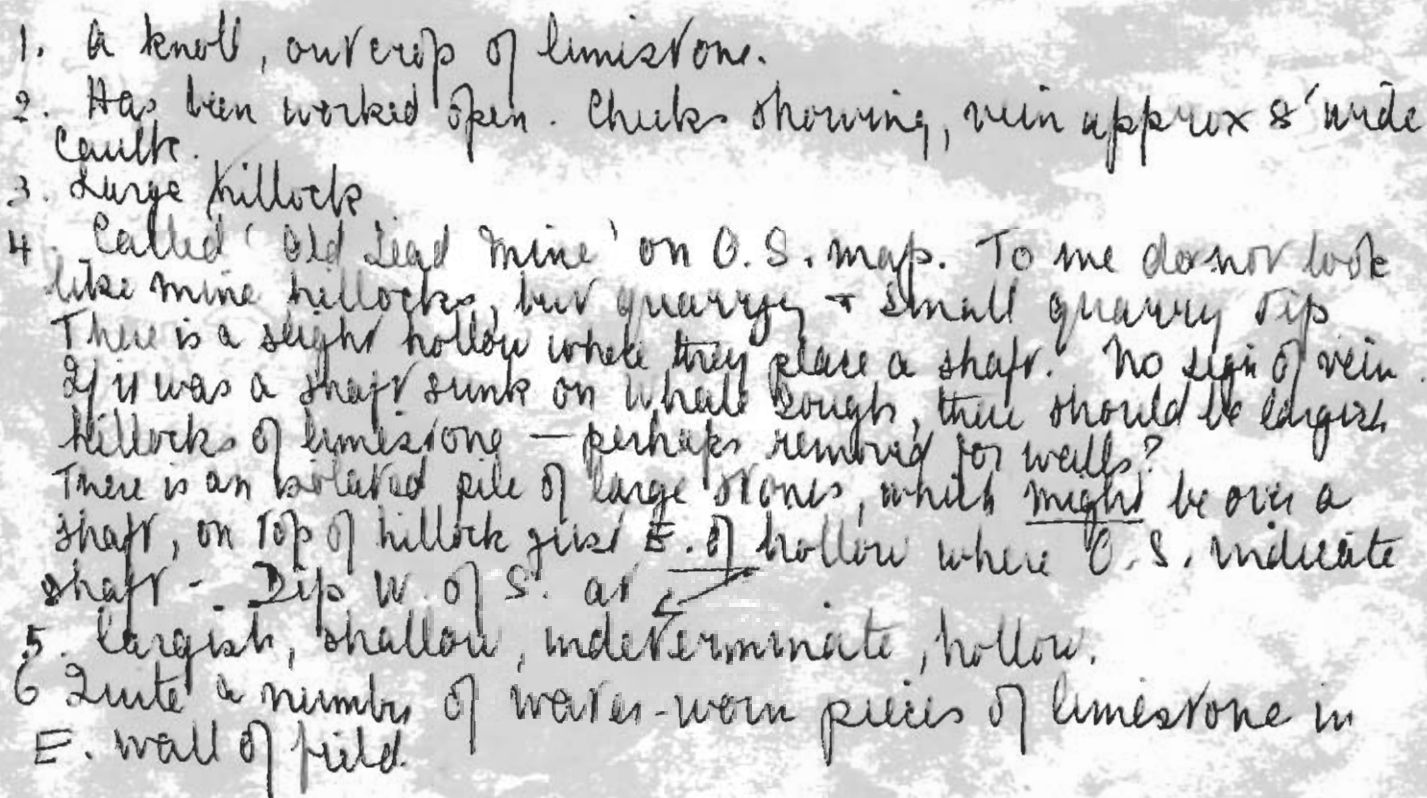 1. A knoll, outcrop of limestone.
2. Has been worked open. Cheeks showing, vein approx 8' wide
Caulk.
3. Large hillock
4. Called 'Old Lead Mine' on O.S. map. To me do not look
like mine hillocks, but quarry & small quarry tip
There is a slight hollow where they place a shaft. No sign of vein.
If it was a shaft sunk on Whale Sough, there should be largish
hillocks of limestone – perhaps removed for walls?
There is an isolated pile of large stones, which might be over a
shaft, on top of hillock just E. of hollow where O.S. indicate
shaft - Dip W. of S. at
5. Largish, shallow, indeterminate, hollow.
6 Quite a number of water-worn pieces of limestone in
E. wall of field.